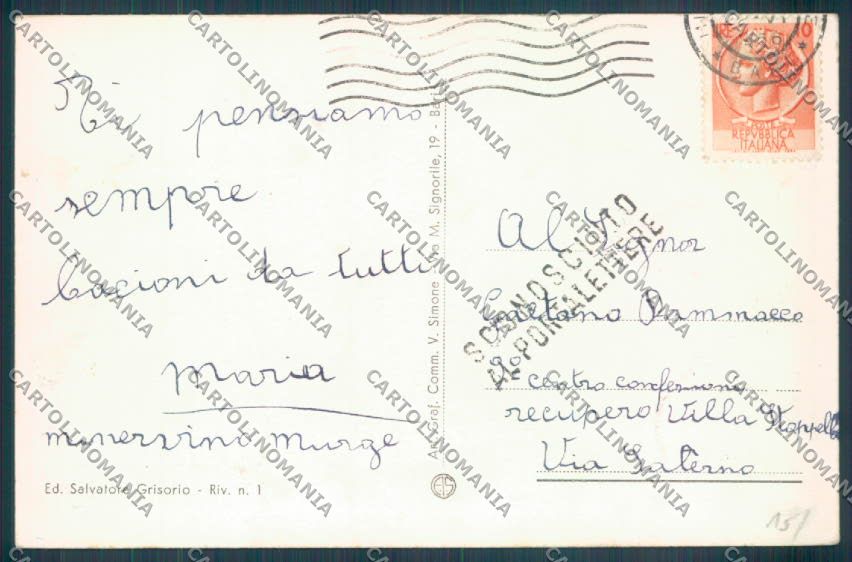 Ti pensiamo
sempre
Bacioni da tutti
Maria
minervino murge
Ed. Salvatore Grisorio - Riv. n. 1
Comm. V. Simone M. Signorile, 19 - Bari
POSTE
REPVBBLICA
ITALIANA
SCONOSCIUTO
AL PORTALETTERE
Al Signor
Gaetano Dammacco
centro confezioni
recupero Villa
Via Salerno
15/
CARTOLINOMANIA